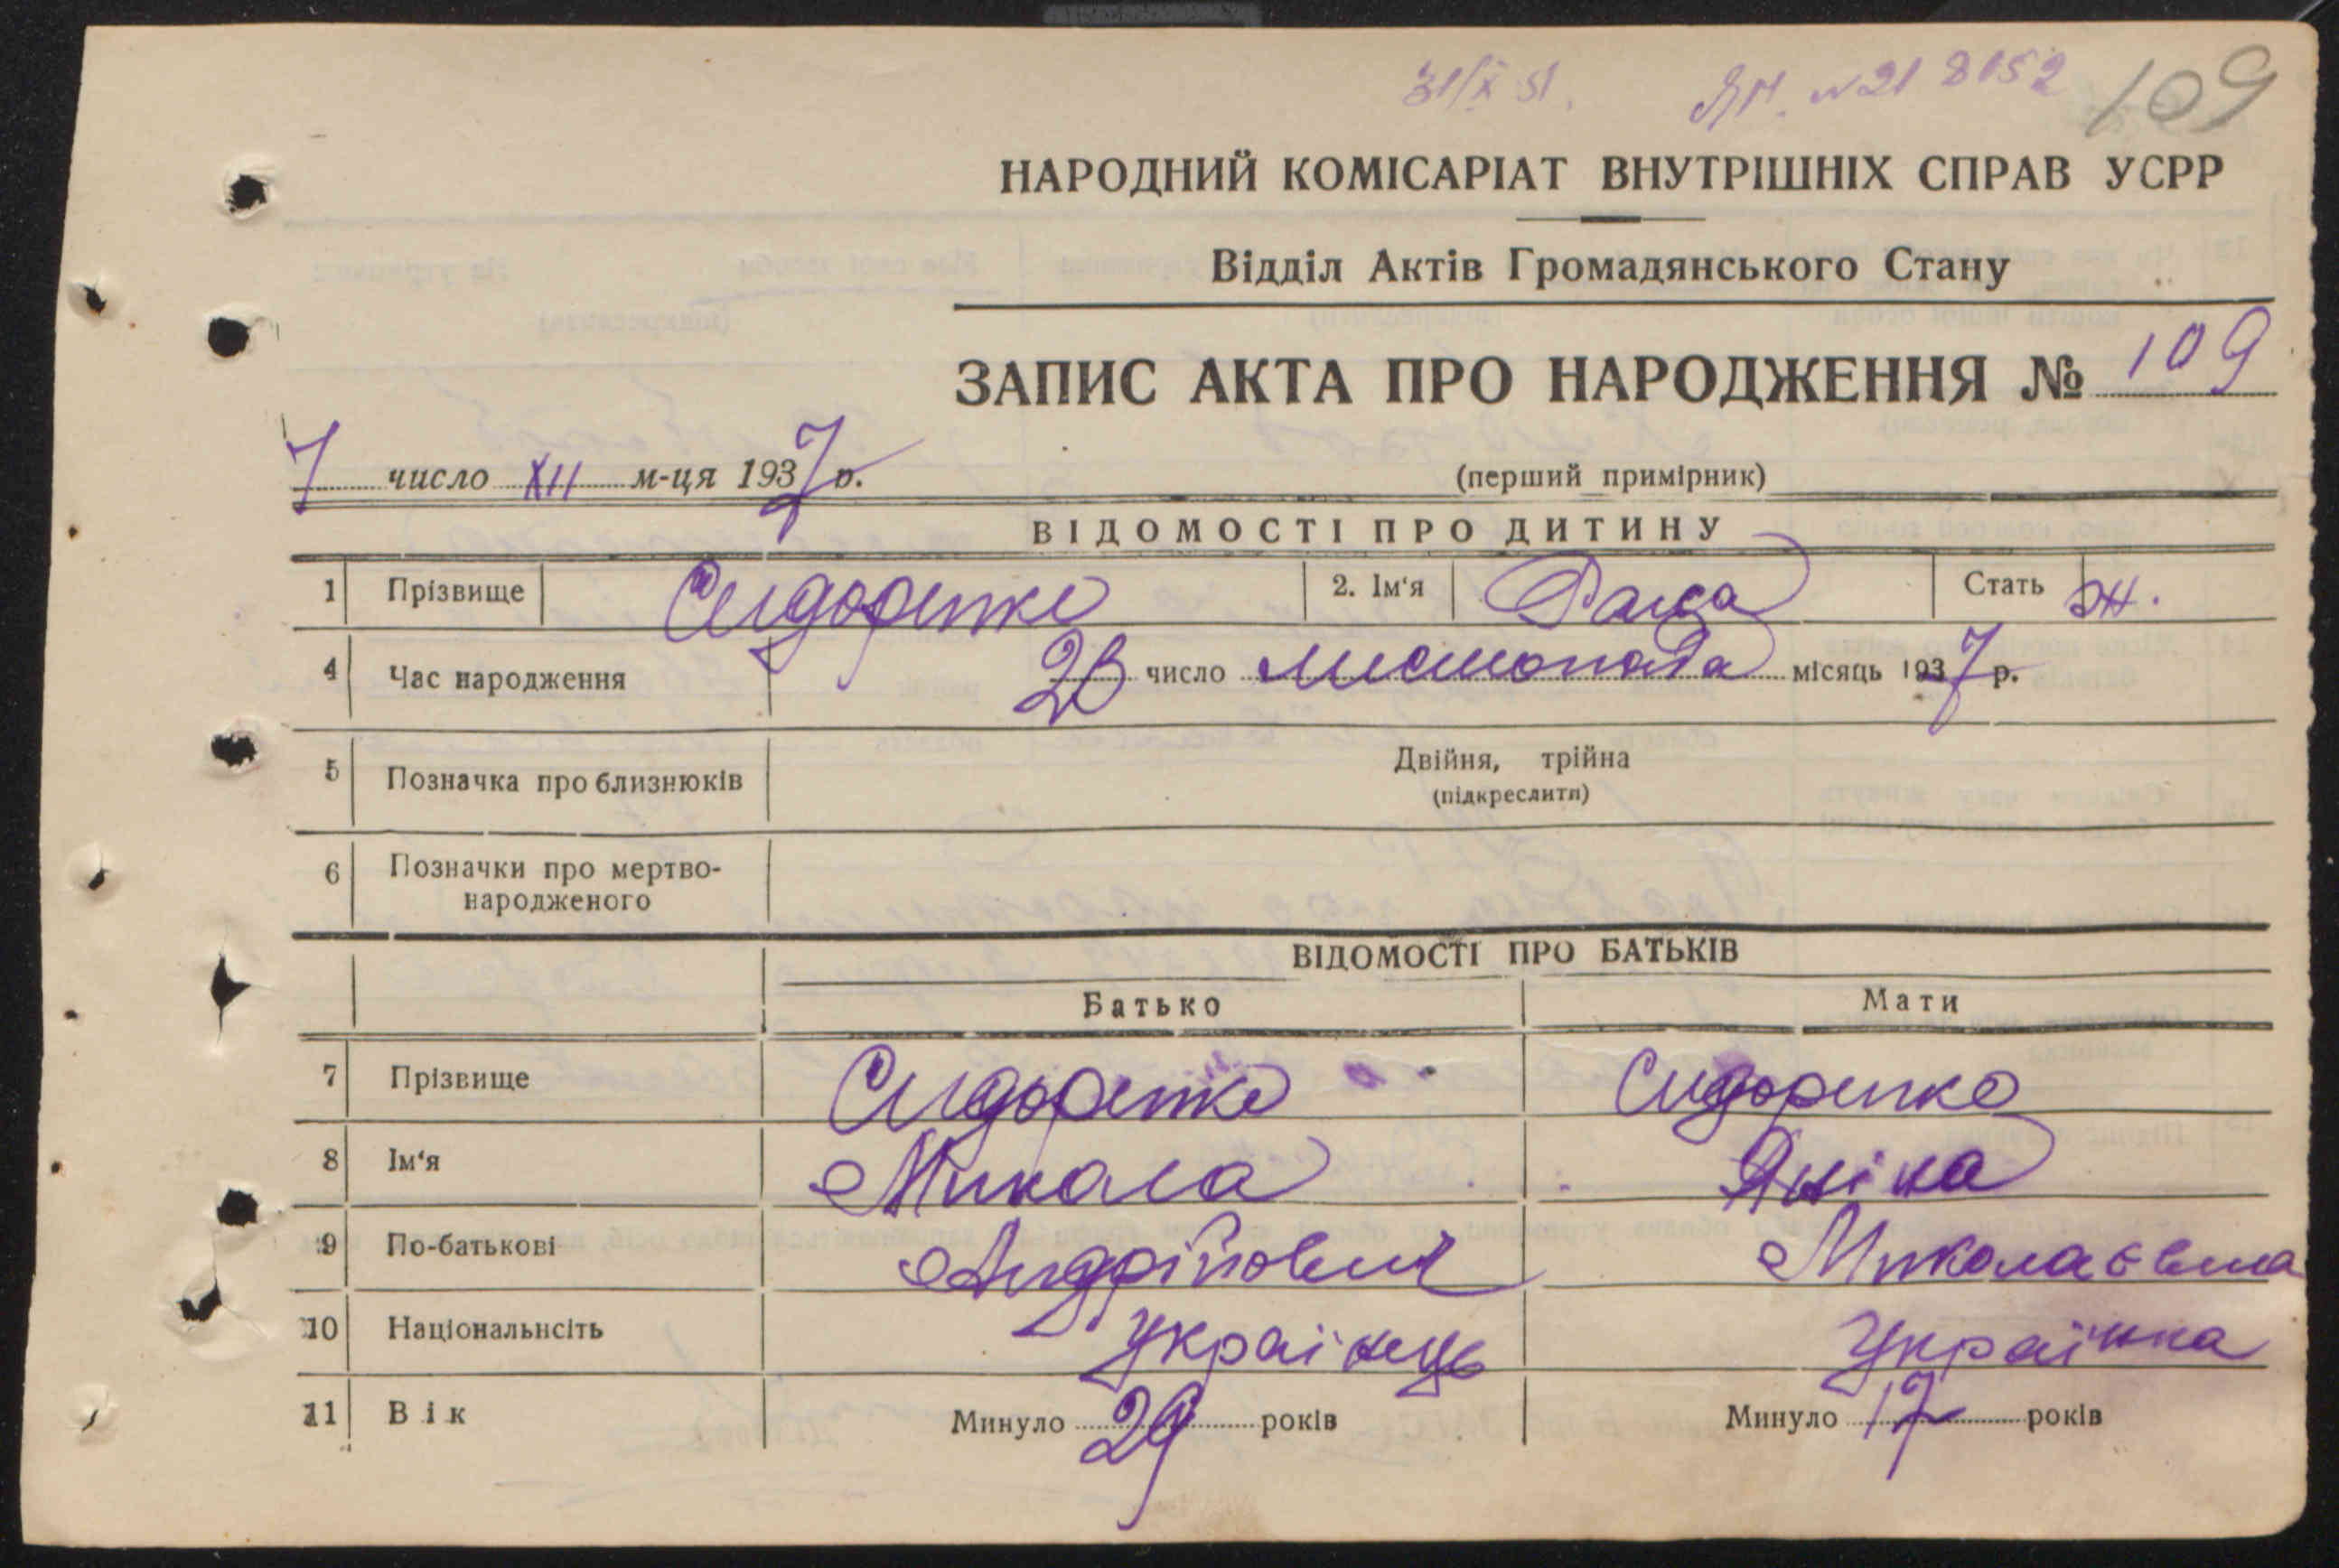 31/X 51. ЯН. №21 8152 109
НАРОДНИЙ КОМІСАРІАТ ВНУТРІШНІХ СПРАВ УСРР
Відділ Актів Громадянського Стану
ЗАПИС АКТА ПРО НАРОДЖЕННЯ № 109
7 число XII м-ця 1937 р. (перший примірник)
ВІДОМОСТІ ПРО ДИТИНУ
1 Прізвище Сидоренко 2. Ім'я Раиса Стать ж.
4 Час народження 28 число листопада місяць 1937 р.
5 Позначка про близнюків Двійня, трійна
(підкреслити)
6 Позначки про мертво-
народженого
ВІДОМОСТІ ПРО БАТЬКІВ
Батько Мати
7 Прізвище Сидоренко Сидоренко
8 Ім'я Микола Яніна
9 По-батькові Андрійович Миколаєвна
10 Національнсіть Українець Українка
11 Вік Минуло 29 років Минуло 17 років